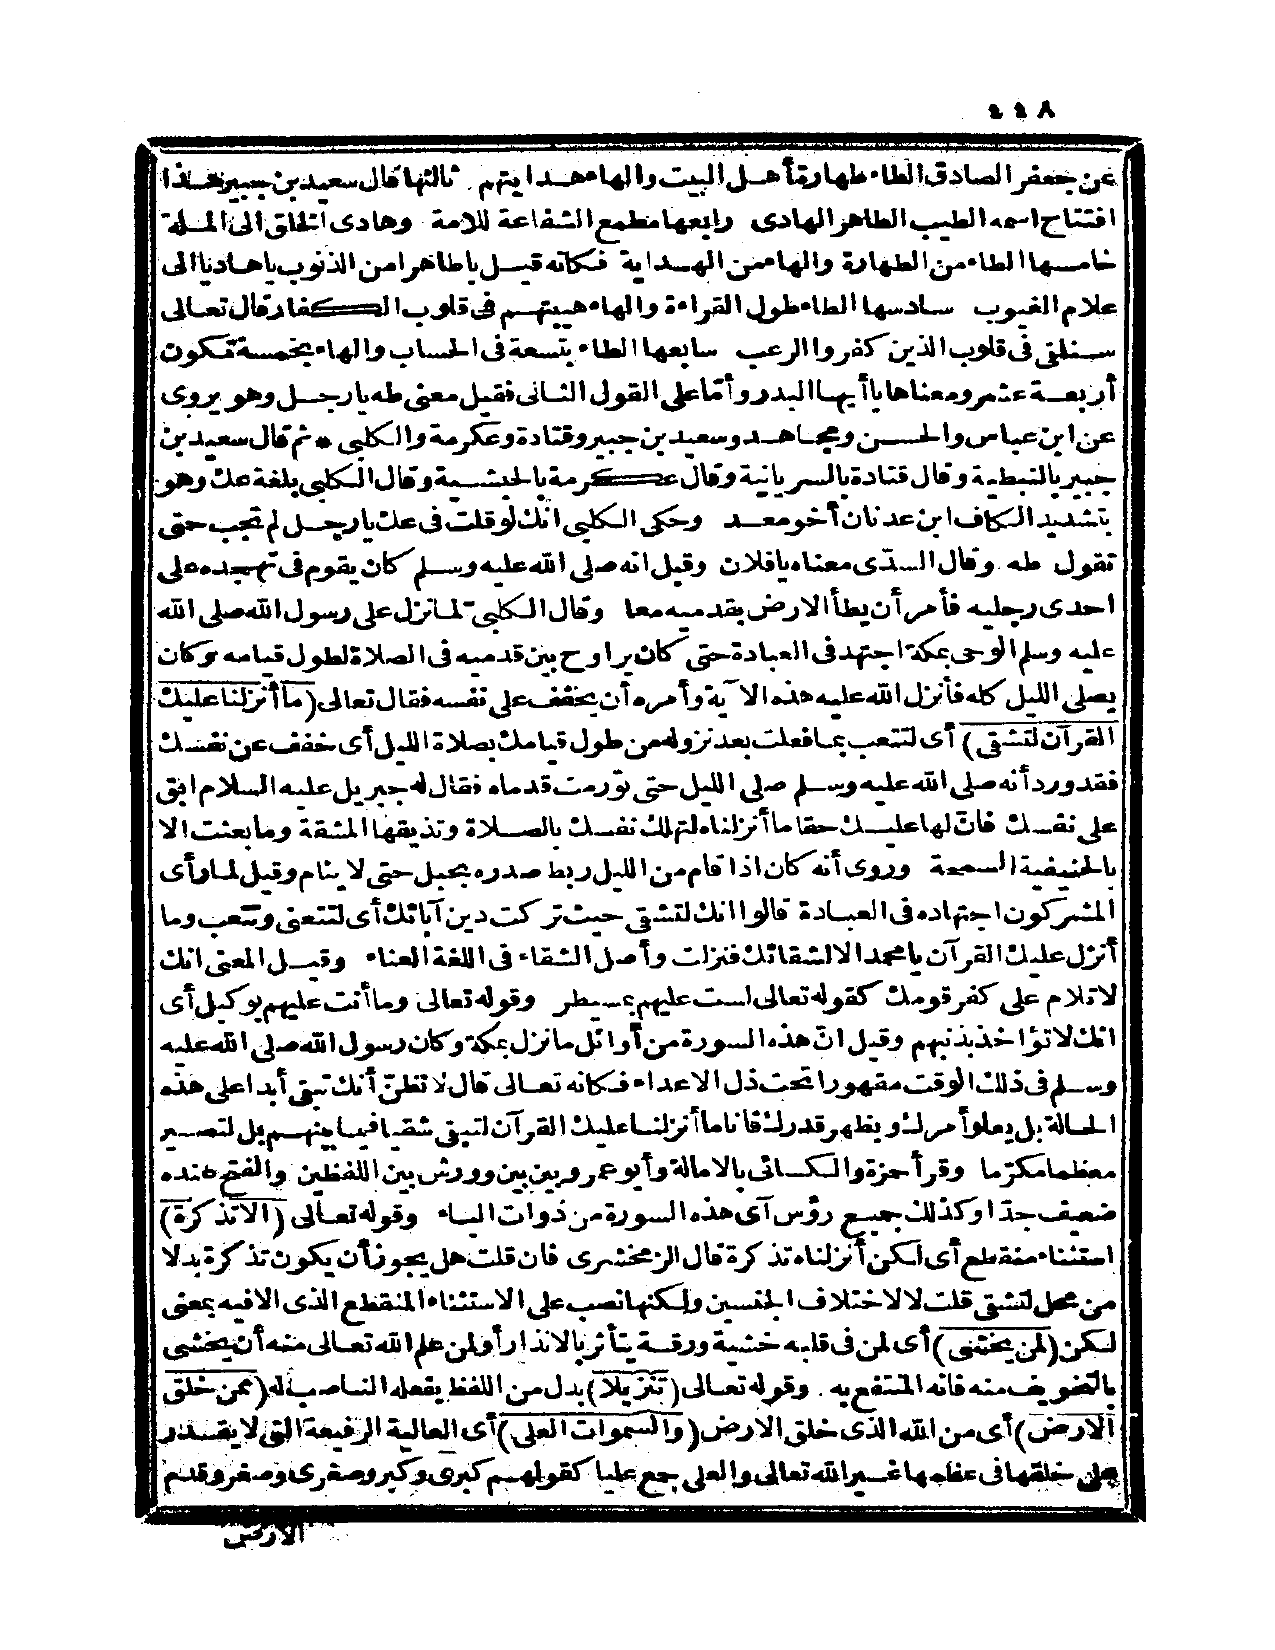 ٤٤٨
عن جعفر الصادق الطاء طهارة أهل البيت والهاء هدايتهم ثالثها قال سعيد بن جبير هذا
افتتاح اسمه الطيب الطاهر الهادى رابعها مطمع الشفاعة للامة وهادى الخلق الى الملة
خامسها الطاء من الطهارة والهاء من الهداية فكانه قيل ياطاهرا من الذنوب ياهاديا الى
علام الغيوب سادسها الطاء طول القراءة والهاء هيبتهم فى قلوب الكفار قال تعالى
سنلقى فى قلوب الذين كفروا الرعب سابعها الطاء بتسعة فى الحساب والهاء بخمسة تكون
أربعة عشر ومعناها يا أيها البدر وأمّا على القول الثانى فقيل معنى طه يا رجل وهو يروى
عن ابن عباس والحسن ومجاهد وسعيد بن جبير وقتادة وعكرمة والكلبى * ثم قال سعيد بن
جبير بالنبطية وقال قتادة بالسريانية وقال عكرمة بالحبشية وقال الكلبى بلغة عك وهو
بتشديد الكاف ابن عدنان أخو معد وحكى الكلبى انك لو قلت فى عك يا رجل لم تجب حتى
تقول طه وقال السدّى معناه يا فلان وقيل انه صلى الله عليه وسلم كان يقوم فى تهجده على
احدى رجليه فأمر أن يطأ الارض بقدميه معا وقال الكلبى لما نزل على رسول الله صلى الله
عليه وسلم الوحى بمكة اجتهد فى العبادة حتى كان يراوح بين قدميه فى الصلاة لطول قيامه وكان
يصلى الليل كله فأنزل الله عليه هذه الآية وأمره أن يخفف على نفسه فقال تعالى (ما أنزلنا عليك
القرآن لتشقى) أى لتتعب بما فعلت بعد نزوله من طول قيامك بصلاة الليل أى خفف عن نفسك
فقد ورد أنه صلى الله عليه وسلم صلى الليل حتى تورمت قدماه فقال له جبريل عليه السلام ابق
على نفسك فانّ لها عليك حقا ما أنزلناه لتهلك نفسك بالصلاة وتذيقها المشقة وما بعثت الا
بالحنيفية السمحة وروى أنه كان اذا قام من الليل ربط صدره بحبل حتى لا ينام وقيل لما رأى
المشركون اجتهاده فى العبادة قالوا انك لتشقى حيث تركت دين آبائك أى لتتعنى وتتعب وما
أنزل عليك القرآن يا محمد الا لشقائك فنزلت وأصل الشقاء فى اللغة العناء وقيل المعنى انك
لا تلام على كفر قومك كقوله تعالى لست عليهم بمسيطر وقوله تعالى وما أنت عليهم بوكيل أى
انك لا تؤاخذ بذنبهم وقيل انّ هذه السورة من أوائل ما نزل بمكة وكان رسول الله صلى الله عليه
وسلم فى ذلك الوقت مقهورا تحت ذل الاعداء فكانه تعالى قال لا تظنّ أنك تبقى أبدا على هذه
الحالة بل يعلو أمرك ويظهر قدرك فانا ما أنزلنا عليك القرآن لتبقى شقيا فيما بينهم بل لتصير
معظما مكرّما وقرأ حمزة والكسائى بالامالة وأبو عمرو بين بين وورش بين اللفظين والفتح عنده
ضعيف جدّا وكذلك جميع رؤس آى هذه السورة من ذوات الياء وقوله تعالى (الا تذكرة)
استثناء منقطع أى لكن أنزلناه تذكرة قال الزمخشرى فان قلت هل يجوز أن يكون تذكرة بدلا
من محل لتشقى قلت لا لاختلاف الجنسين ولكنها نصب على الاستثناء المنقطع الذى الا فيه بمعنى
لكن (لمن يخشى) أى لمن فى قلبه خشية ورقة يتأثر بالانذار أو لمن علم الله تعالى منه أن يخشى
بالتخويف منه فانه المنتفع به وقوله تعالى (تنزيلا) بدل من اللفظ بفعله الناصب له (ممن خلق
الارض) أى من الله الذى خلق الارض (والسموات العلى) أى العالية الرفيعة التى لا يقدر
على خلقها فى عظمها غير الله تعالى والعلى جمع عليا كقولهم كبرى وكبر وصغرى وصغر وقدم
الارض